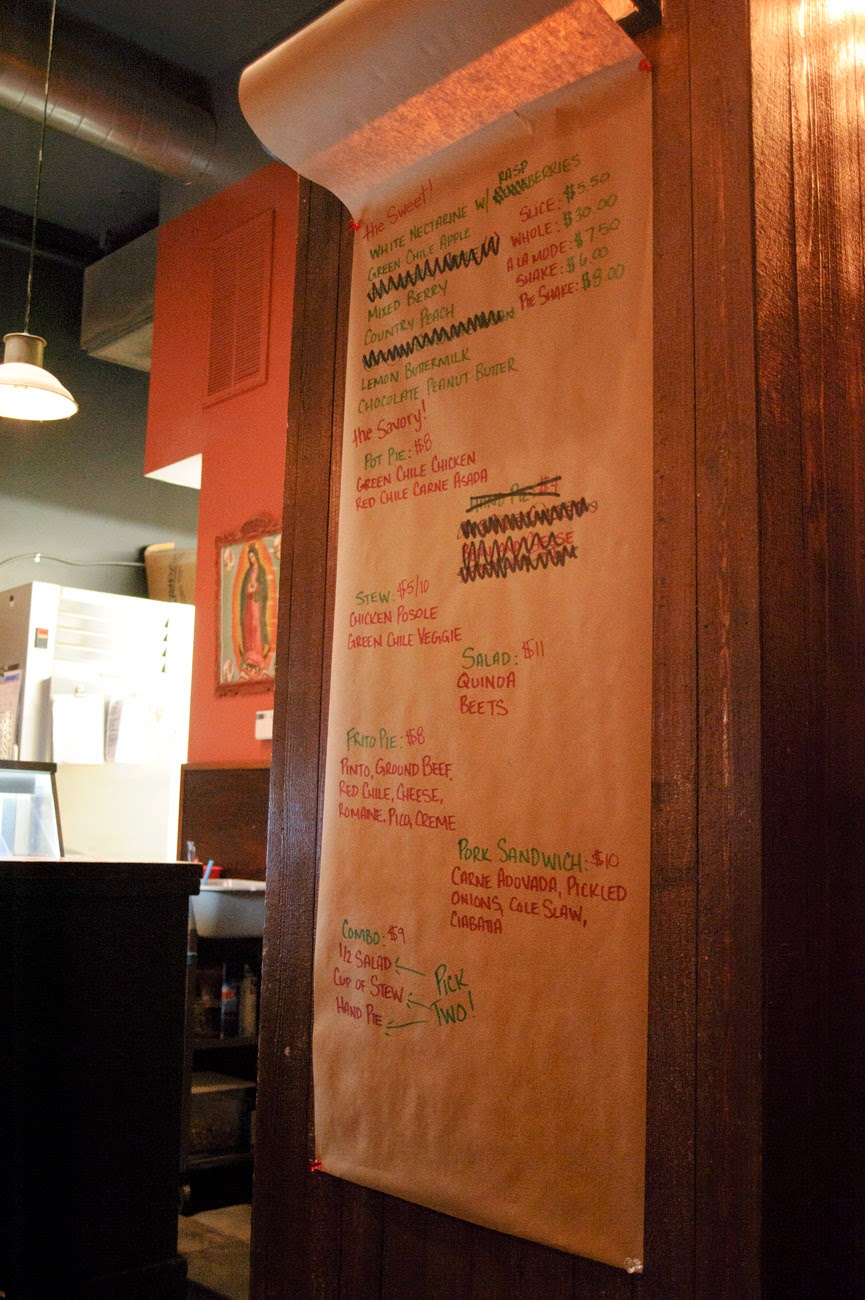 the Sweet!
WHITE NECTARINE W/ RASPBERRIES
GREEN CHILE APPLE
MIXED BERRY
COUNTRY PEACH
LEMON BUTTERMILK
CHOCOLATE PEANUT BUTTER
SLICE: $5.50
WHOLE: $30.00
A LA MODE: $7.50
SHAKE: $6.00
PIE SHAKE: $8.00
the Savory!
POT PIE: $8
GREEN CHILE CHICKEN
RED CHILE CARNE ASADA
HAND PIE: $7
STEW: $5/10
CHICKEN POSOLE
GREEN CHILE VEGGIE
SALAD: $11
QUINOA
BEETS
FRITO PIE: $8
PINTO, GROUND BEEF,
RED CHILE, CHEESE,
ROMAINE, PICO, CREME
PORK SANDWICH: $10
CARNE ADOVADA, PICKLED
ONIONS, COLE SLAW,
CIABATTA
COMBO: $9
1/2 SALAD
CUP OF STEW
HAND PIE
PICK
TWO!